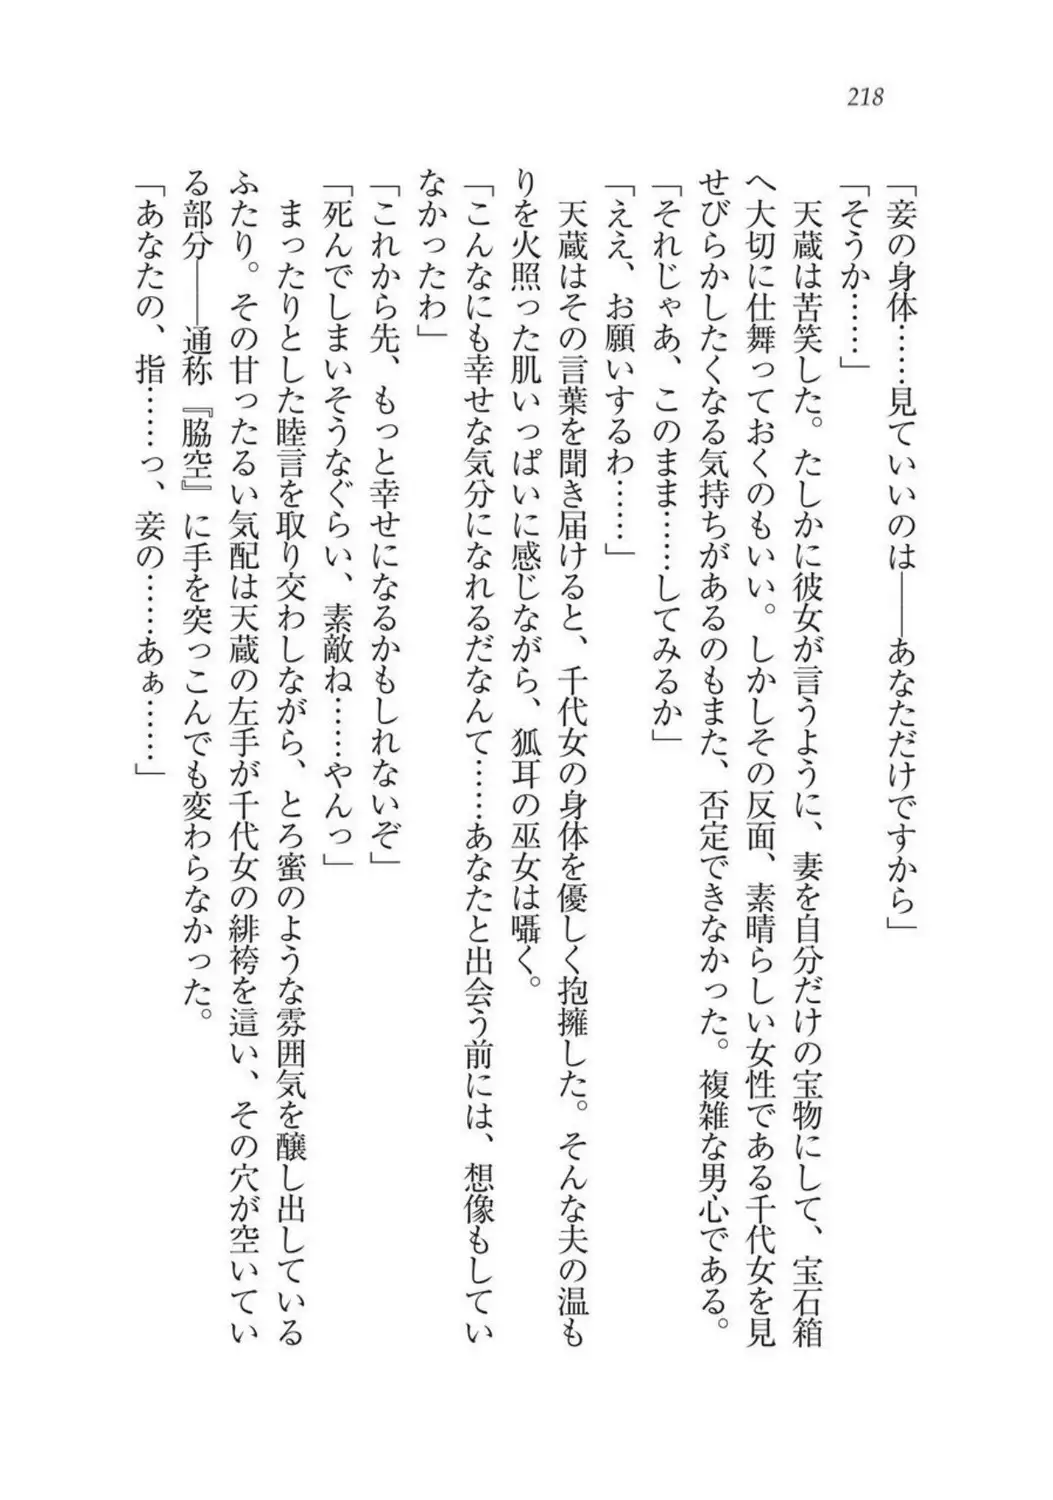 218
「妾の身体……見ていいのは――あなただけですから」
「そうか……」
　天蔵は苦笑した。たしかに彼女が言うように、妻を自分だけの宝物にして、宝石箱
へ大切に仕舞っておくのもいい。しかしその反面、素晴らしい女性である千代女を見
せびらかしたくなる気持ちがあるのもまた、否定できなかった。複雑な男心である。
「それじゃあ、このまま……してみるか」
「ええ、お願いするわ……」
　天蔵はその言葉を聞き届けると、千代女の身体を優しく抱擁した。そんな夫の温も
りを火照った肌いっぱいに感じながら、狐耳の巫女は囁く。
「こんなにも幸せな気分になれるだなんて……あなたと出会う前には、想像もしてい
なかったわ」
「これから先、もっと幸せになるかもしれないぞ」
「死んでしまいそうなぐらい、素敵ね……やんっ」
　まったりとした睦言を取り交わしながら、とろ蜜のような雰囲気を醸し出している
ふたり。その甘ったるい気配は天蔵の左手が千代女の緋袴を這い、その穴が空いてい
る部分――通称『脇空』に手を突っこんでも変わらなかった。
「あなたの、指……っ、妾の……あぁ……」